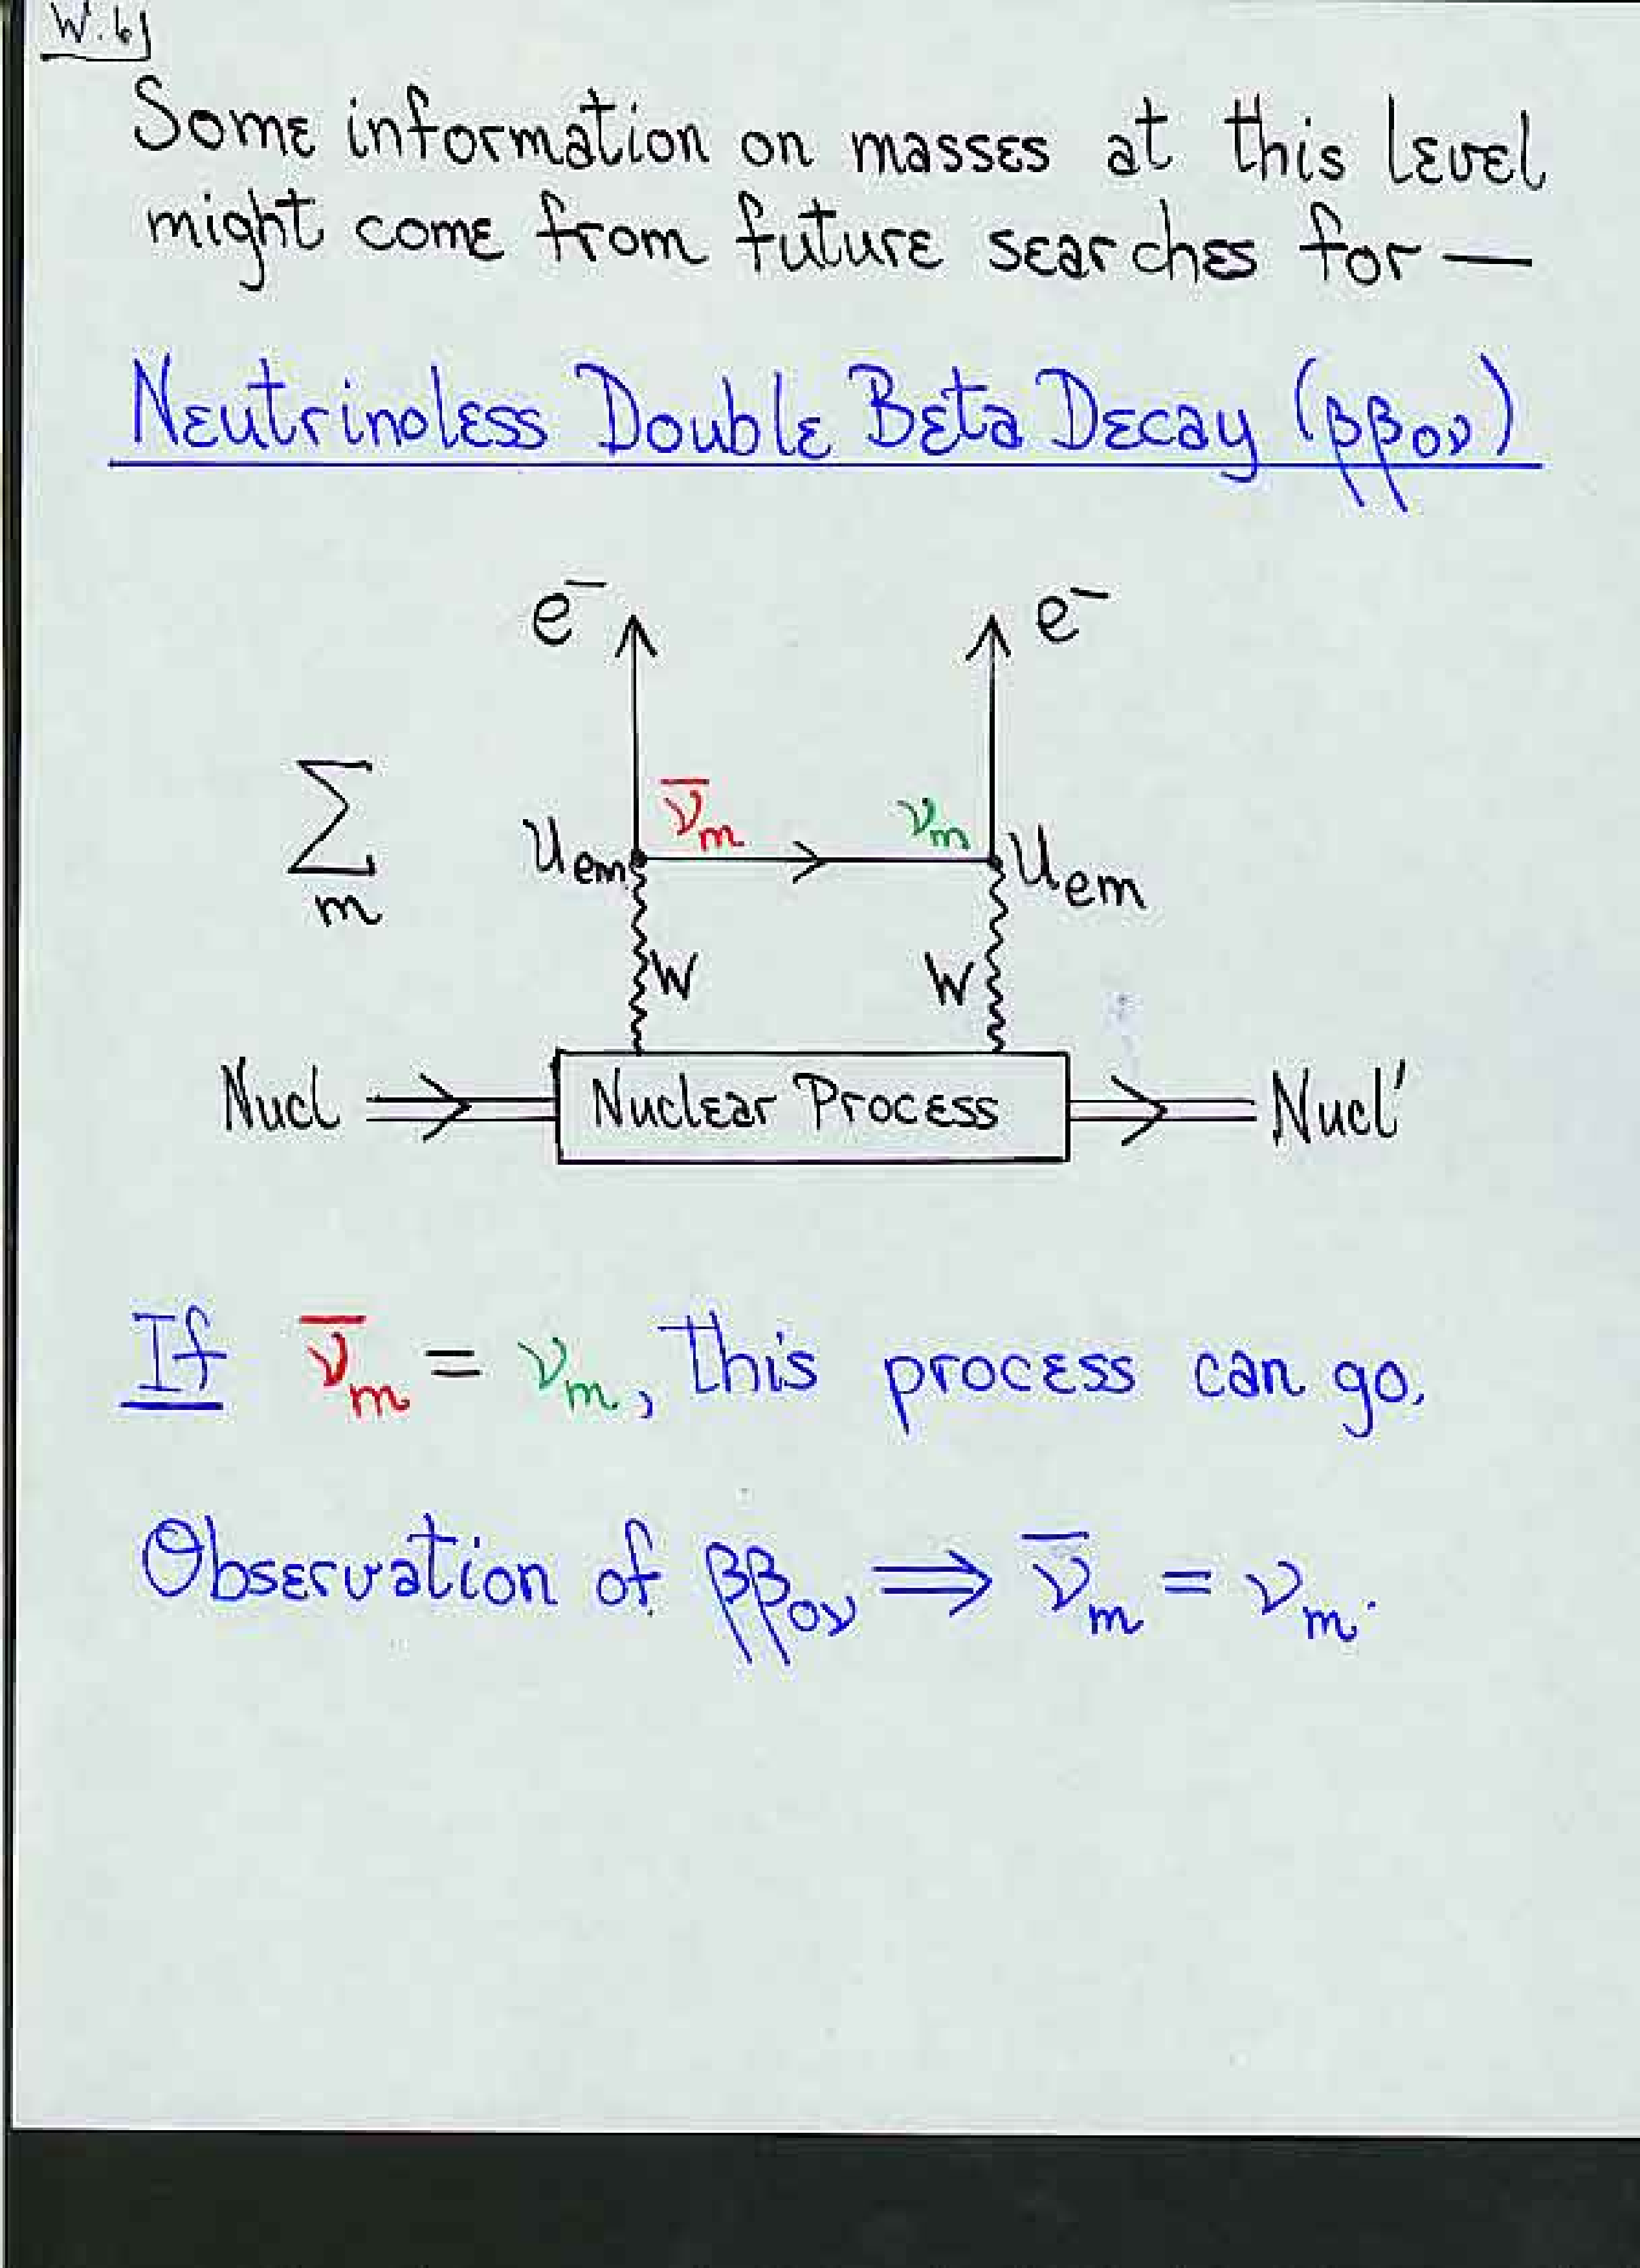 W.6
Some information on masses at this level
might come from future searches for —
Neutrinoless Double Beta Decay (ββ₀ν)
e⁻ e⁻
∑ m
ν̄m νm
Uem Uem
W W
Nucl Nuclear Process Nucl'
If ν̄m = νm, this process can go.
Observation of ββ₀ν ⟹ ν̄m = νm.